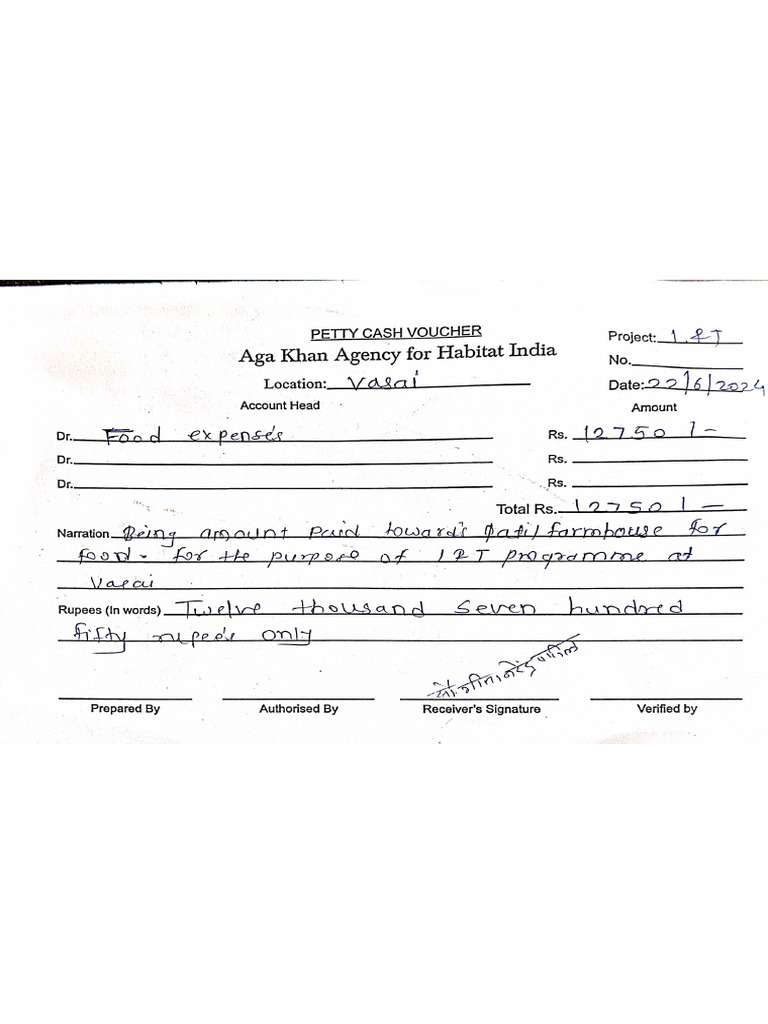 PETTY CASH VOUCHER
Aga Khan Agency for Habitat India
Project: I & T
No.
Location: Vasai
Date: 22/6/2024
Account Head
Amount
Dr. Food expenses
Rs. 12750/-
Dr.
Rs.
Dr.
Rs.
Total Rs. 12750/-
Narration Being amount paid towards Patil farmhouse for
food - for the purpose of I & T programme at
Vasai
Rupees (In words) Twelve thousand seven hundred
fifty rupees only
Prepared By
Authorised By
Receiver's Signature
Verified by